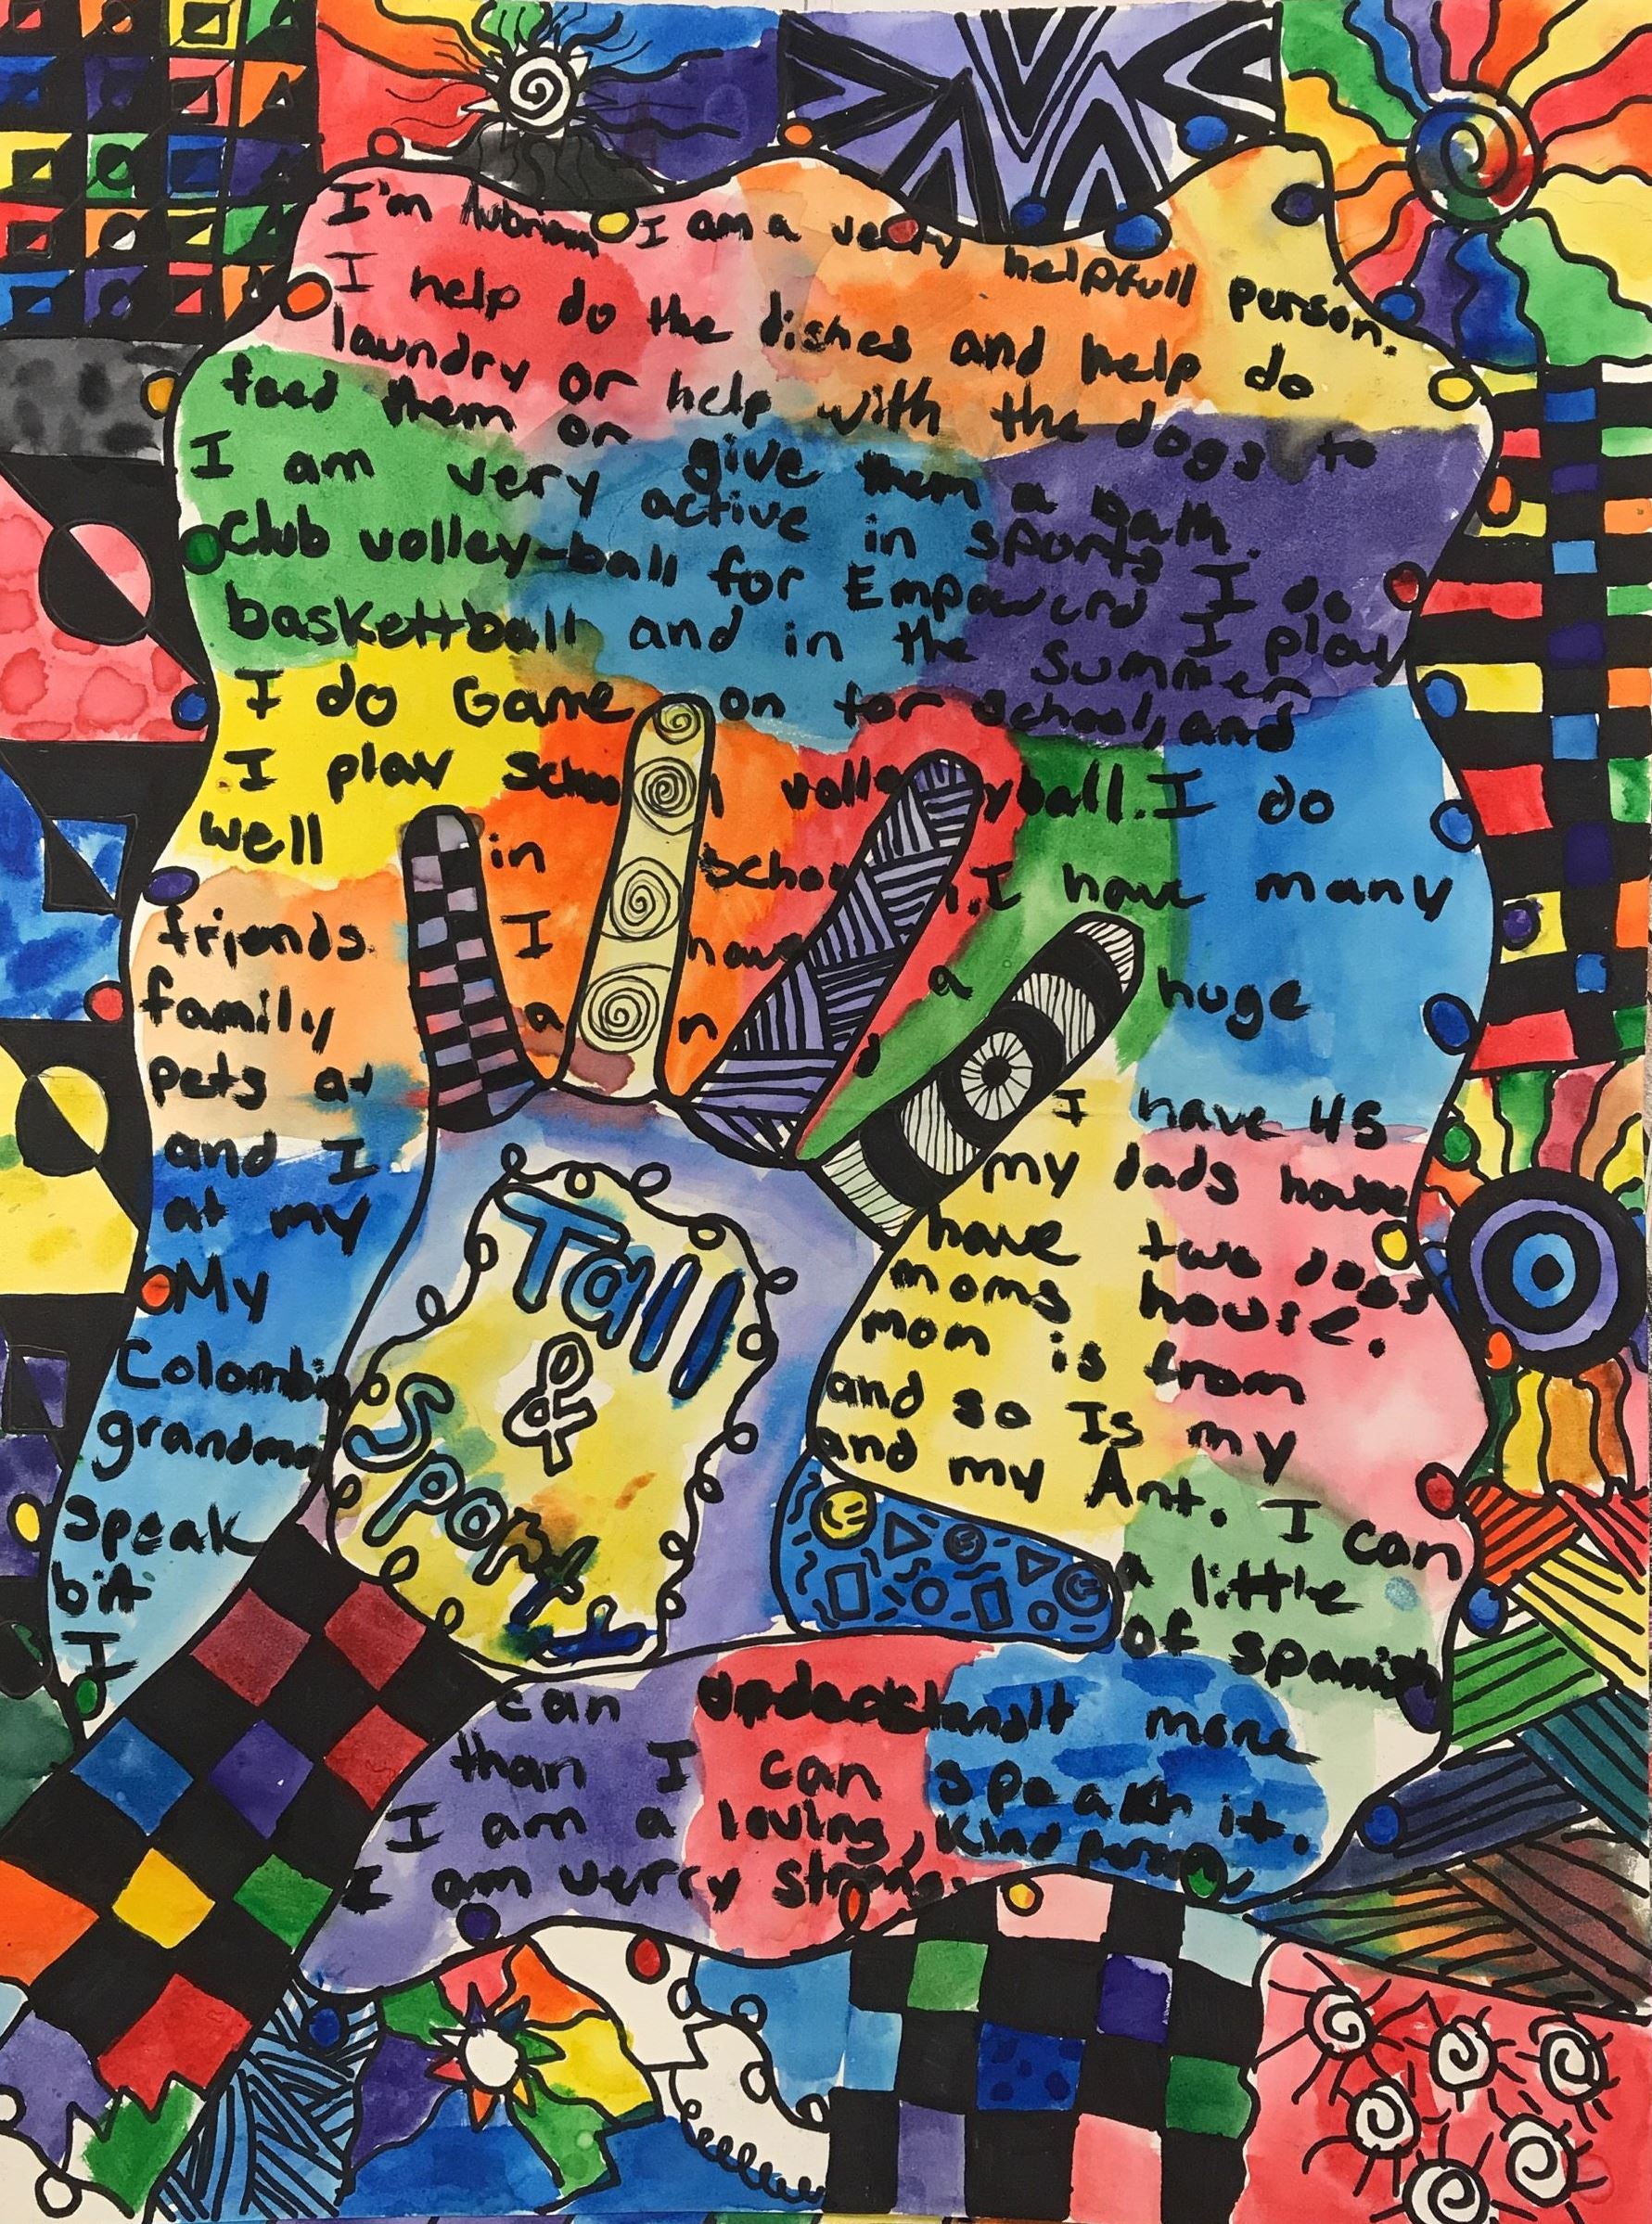 I'm I am a verry helpfull person.
I help do the dishes and help do
laundry or help with the dogs to
feed them or give them a bath.
I am very active in sports I do
club volley-ball for Empowerd I play
baskettball and in the summer
I do Game on for school, and
I play school volleyball. I do
well in school. I have many
friends. I have a huge
family and I have 45
pets at my dads house
and I have two dogs
at my moms house.
My mom is from
Colombia and so Is my
grandma and my Ant. I can
speak a little
bit of spanish
I can understandIt more
than I can speak it.
I am a loving, kind person,
I am verry strong.
Tall
&
Sporty